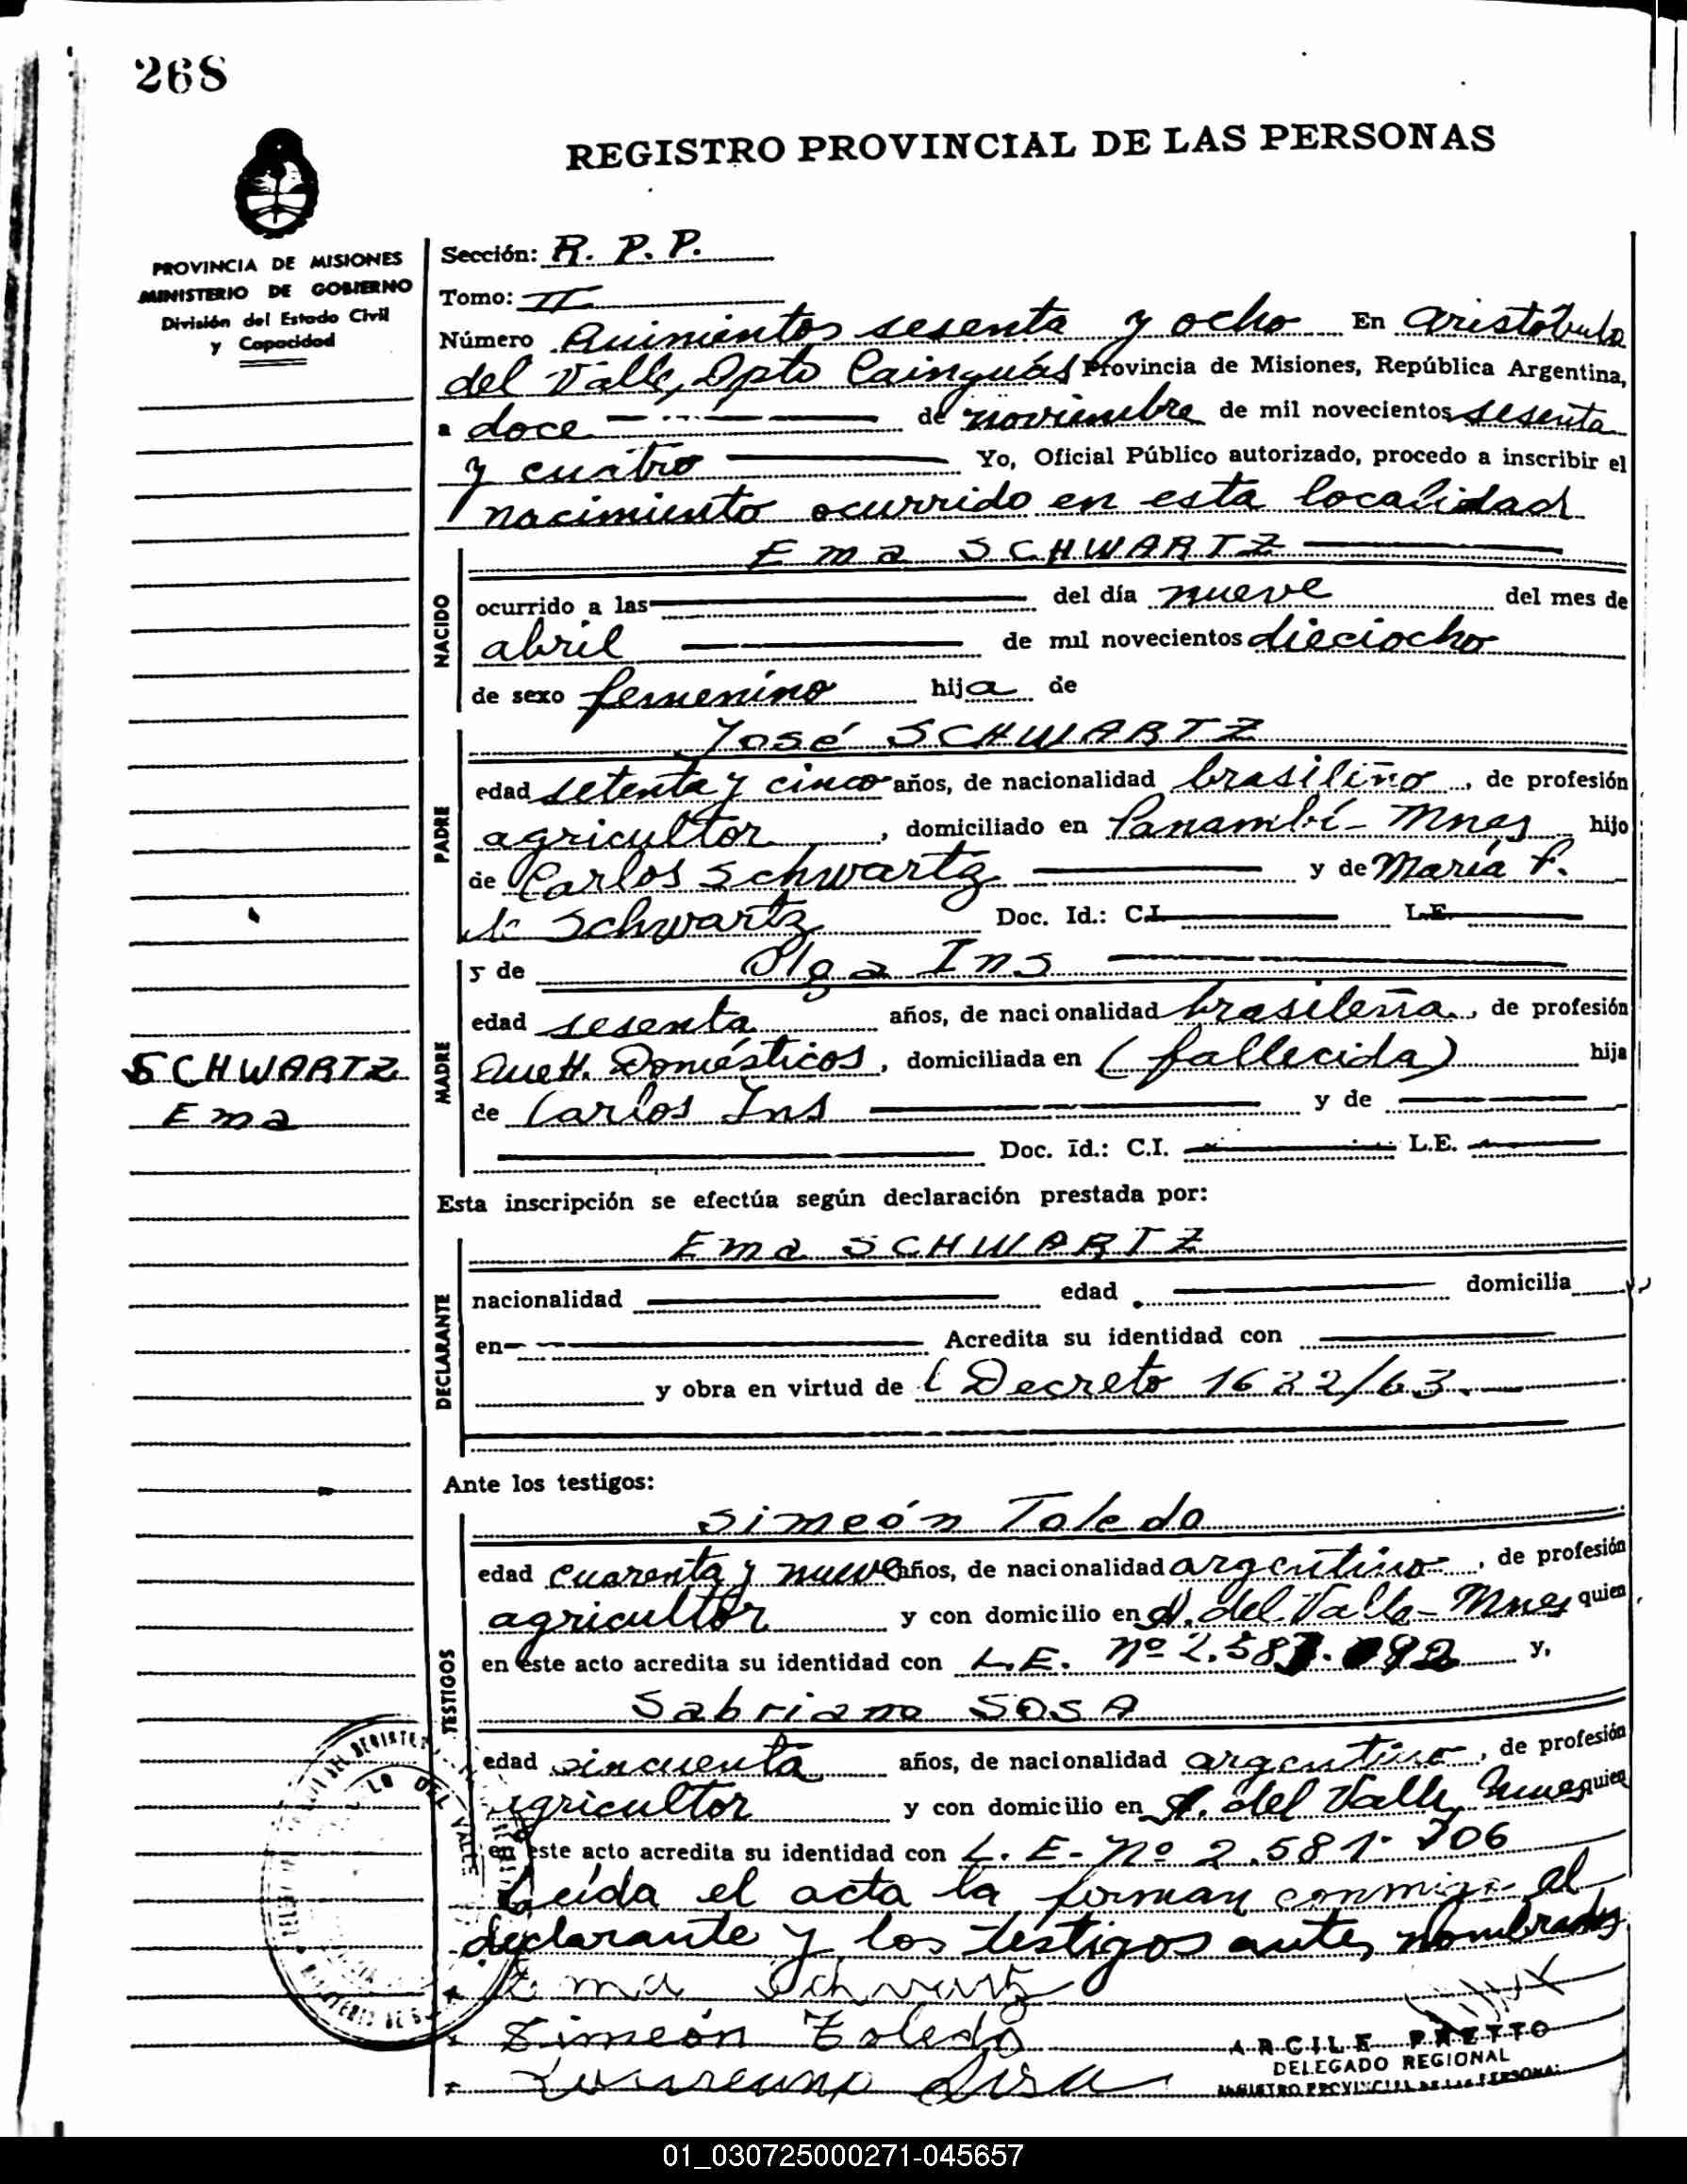 268
REGISTRO PROVINCIAL DE LAS PERSONAS
PROVINCIA DE MISIONES
MINISTERIO DE GOBIERNO
División del Estado Civil
y Capacidad
Sección: R. P. P.
Tomo: II
Número Quinientos sesenta y ocho En Aristóbulo
del Valle, Dpto Cainguás Provincia de Misiones, República Argentina,
a doce de noviembre de mil novecientos sesenta
y cuatro Yo, Oficial Público autorizado, procedo a inscribir el
nacimiento ocurrido en esta localidad
NACIDO
Ema SCHWARTZ
ocurrido a las del día nueve del mes de
abril de mil novecientos dieciocho
de sexo femenino hija de
PADRE
José SCHWARTZ
edad setenta y cinco años, de nacionalidad brasileño, de profesión
agricultor, domiciliado en Panambí - Mnes hijo
de Carlos Schwartz y de María F.
de Schwartz Doc. Id.: C.I. L.E.
MADRE
y de Olga Ins
edad sesenta años, de nacionalidad brasileña, de profesión
Queh. Domésticos, domiciliada en (fallecida) hija
de Carlos Ins y de
Doc. Id.: C.I. L.E.
SCHWARTZ
Ema
Esta inscripción se efectúa según declaración prestada por:
DECLARANTE
Ema SCHWARTZ
nacionalidad edad domicilia
en Acredita su identidad con
y obra en virtud de (Decreto 1632/63.
Ante los testigos:
TESTIGOS
Simeón Toledo
edad cuarenta y nueve años, de nacionalidad argentino, de profesión
agricultor y con domicilio en A. del Valle - Mnes quien
en este acto acredita su identidad con L.E. Nº 2.58 y,
Sabriano SOSA
edad cincuenta años, de nacionalidad argentino, de profesión
agricultor y con domicilio en A. del Valle, Mnes quien
en este acto acredita su identidad con L. E - Nº 2.581.706
Leída el acta la firman conmigo el
declarante y los testigos antes nombrados
Ema Schvartz
Simeón Toledo
Sosa
ARGILE PRETTO
DELEGADO REGIONAL
REGISTRO PROVINCIAL DE LAS PERSONAS
01_030725000271-045657